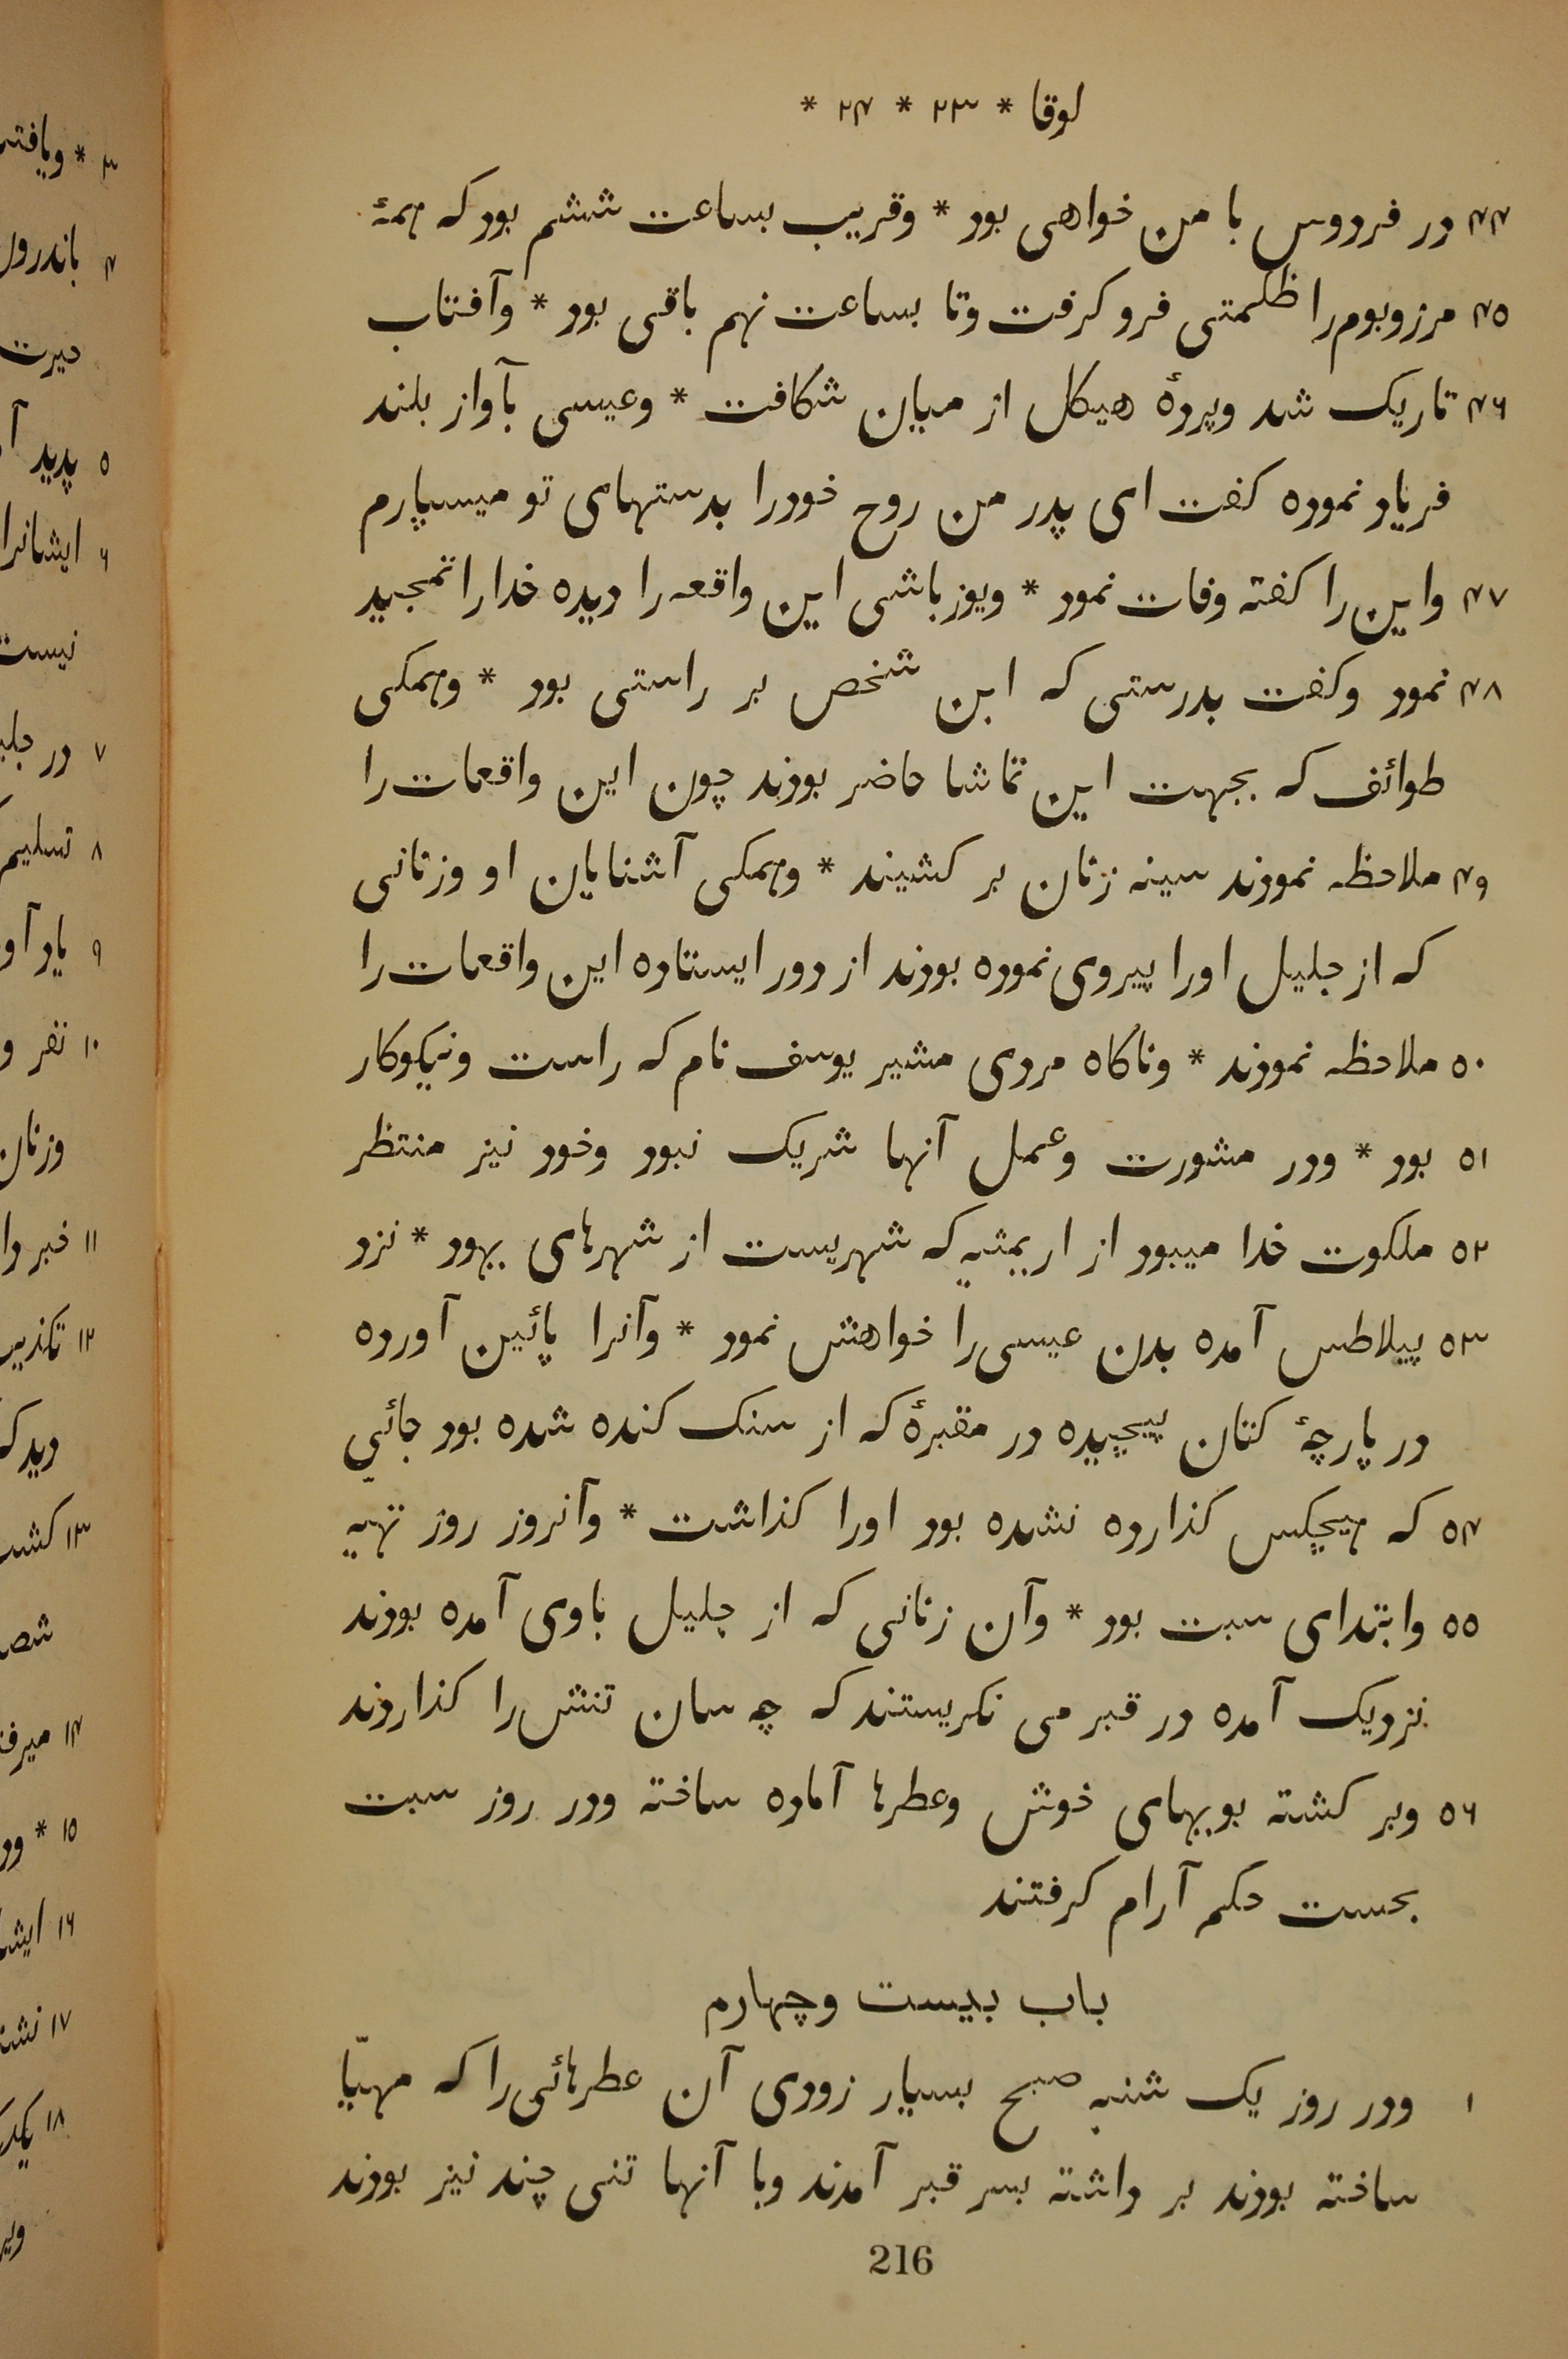 لوقا * ۲۳ * ۲۴ *
۴۴ در فردوس با من خواهی بود * وقریب بساعت ششم بود که همهٔ
۴۵ مرزوبوم را ظلمتی فرو کرفت وتا بساعت نهم باقی بود * وآفتاب
۴۶ تاریک شد وپردهٔ هیکل از میان شکافت * وعیسی بآواز بلند
فریاد نموده کفت ای پدر من روح خودرا بدستهای تو میسپارم
۴۷ واین را کفته وفات نمود * ویوزباشی این واقعه را دیده خدارا تمجید
۴۸ نمود وکفت بدرستی که این شخص بر راستی بود * وهمکی
طوائف که بجهت این تماشا حاضر بودند چون این واقعات را
۴۹ ملاحظه نمودند سینه زنان بر کشیند * وهمکی آشنایان او وزنانی
که از جلیل اورا پیروی نموده بودند از دور ایستاده این واقعات را
۵۰ ملاحظه نمودند * وناکاه مردی مشیر یوسف نام که راست ونیکوکار
۵۱ بود * ودر مشورت وعمل آنها شریک نبود وخود نیز منتظر
۵۲ ملکوت خدا میبود از اریمثیه که شهریست از شهرهای یهود * نزد
۵۳ پیلاطس آمده بدن عیسی را خواهش نمود * وآنرا پائین آورده
در پارچهٔ کتان پیچیده در مقبرهٔ که از سنک کنده شده بود جائی
۵۴ که هیچکس کذارده نشده بود اورا کذاشت * وآنروز روز تهیّه
۵۵ وابتدای سبت بود * وآن زنانی که از جلیل باوی آمده بودند
نزدیک آمده در قبر می نکریستند که چه سان تنش را کذاردند
۵۶ وبر کشته بویهای خوش وعطرها آماده ساخته ودر روز سبت
بحست حکم آرام کرفتند
باب بیست وچهارم
۱ ودر روز یک شنبه صبح بسیار زودی آن عطرهائی را که مهیّا
ساخته بودند بر داشته بسر قبر آمدند وبا آنها تنی چند نیز بودند
216